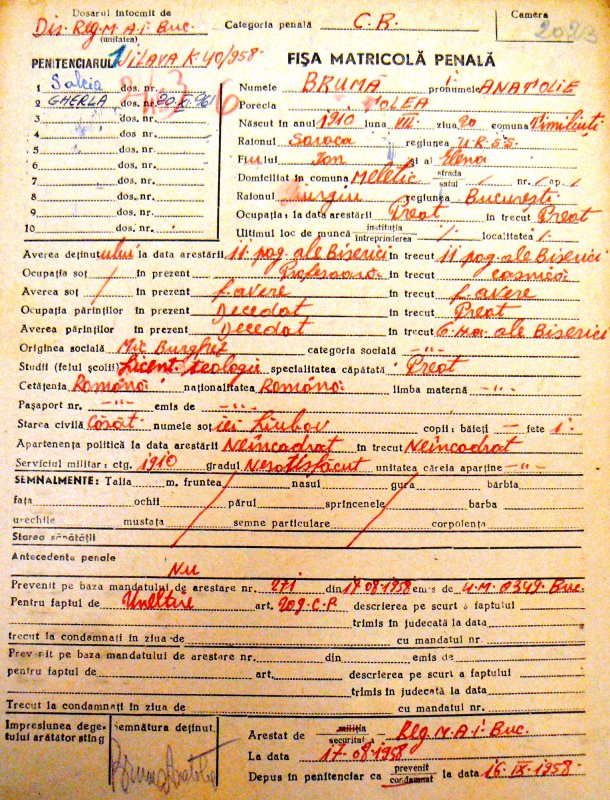 Dosarul întocmit de
Dir. Reg. M.A.I. Buc.
(unitatea)
Categoria penală C.R.
Camera
2023
PENITENCIARUL JILAVA K 40/958
FIŞA MATRICOLĂ PENALĂ
1 Salcia dos. nr.
2 GHERLA dos. nr. 20.XI.961
3 dos. nr.
4 dos. nr.
5 dos. nr.
6 dos. nr.
7 dos. nr.
8 dos. nr.
9 dos. nr.
10 dos. nr.
Numele BRUMĂ pronumele ANATOLIE
Porecla TOLEA
Născut în anul 1910 luna VII ziua 20 comuna Timiliuţi
Raionul Soroca regiunea U.R.S.S.
Fiul lui Ion şi al Elena
Domiciliat în comuna Meletic strada satul / nr. / ap. /
Raionul Giurgiu regiunea Bucureşti
Ocupaţia: la data arestării Preot în trecut Preot
Ultimul loc de muncă instituţia întreprinderea /. localitatea /.
Averea deţinutului la data arestării 11 pog. ale Bisericii în trecut 11 pog. ale Bisericii
Ocupaţia soţ / în prezent Profesoară în trecut casnică
Averea soţ / în prezent f. avere în trecut f. avere
Ocupaţia părinţilor în prezent Decedat în trecut Preot
Averea părinţilor în prezent Decedat în trecut 6 Ha. ale Bisericii
Originea socială Mic Burghez categoria socială -"-
Studii (felul şcolii) Licent. teologie specialitatea căpătată Preot
Cetăţenia Română naţionalitatea Română limba maternă -"-
Paşaport nr. -"- emis de -"-
Starea civilă Căsăt. numele soţiei Liubov copii: băieţi — fete 1
Apartenenţa politică la data arestării Neîncadrat în trecut Neîncadrat
Serviciul militar: ctg. 1910 gradul Nesatisfăcut unitatea căreia aparţine -"-
SEMNALMENTE: Talia m, fruntea nasul gura bărbia
faţa ochii părul sprincenele barba
urechile mustaţa semne particulare corpolenţa
Starea sănătăţii
Antecedente penale
Nu
Prevenit pe baza mandatului de arestare nr. 271 din 17-08-1958 emis de U.M. 0349. Buc.
Pentru faptul de Uneltire art. 209. C.P. descrierea pe scurt a faptului
trimis în judecată la data
trecut la condamnaţi în ziua de cu mandatul nr.
Prevenit pe baza mandatului de arestare nr. din emis de
pentru faptul de art. descrierea pe scurt a faptului
trimis în judecată la data
Trecut la condamnaţi în ziua de cu mandatul nr.
Impresiunea degetului arătător stîng
Semnătura deţinut.
Bruma Anatolie
Arestat de miliţia securitatea Reg. M.A.I. Buc.
La data 17-08-1958
Depus în penitenciar ca prevenit condamnat la data 16.IX-1958